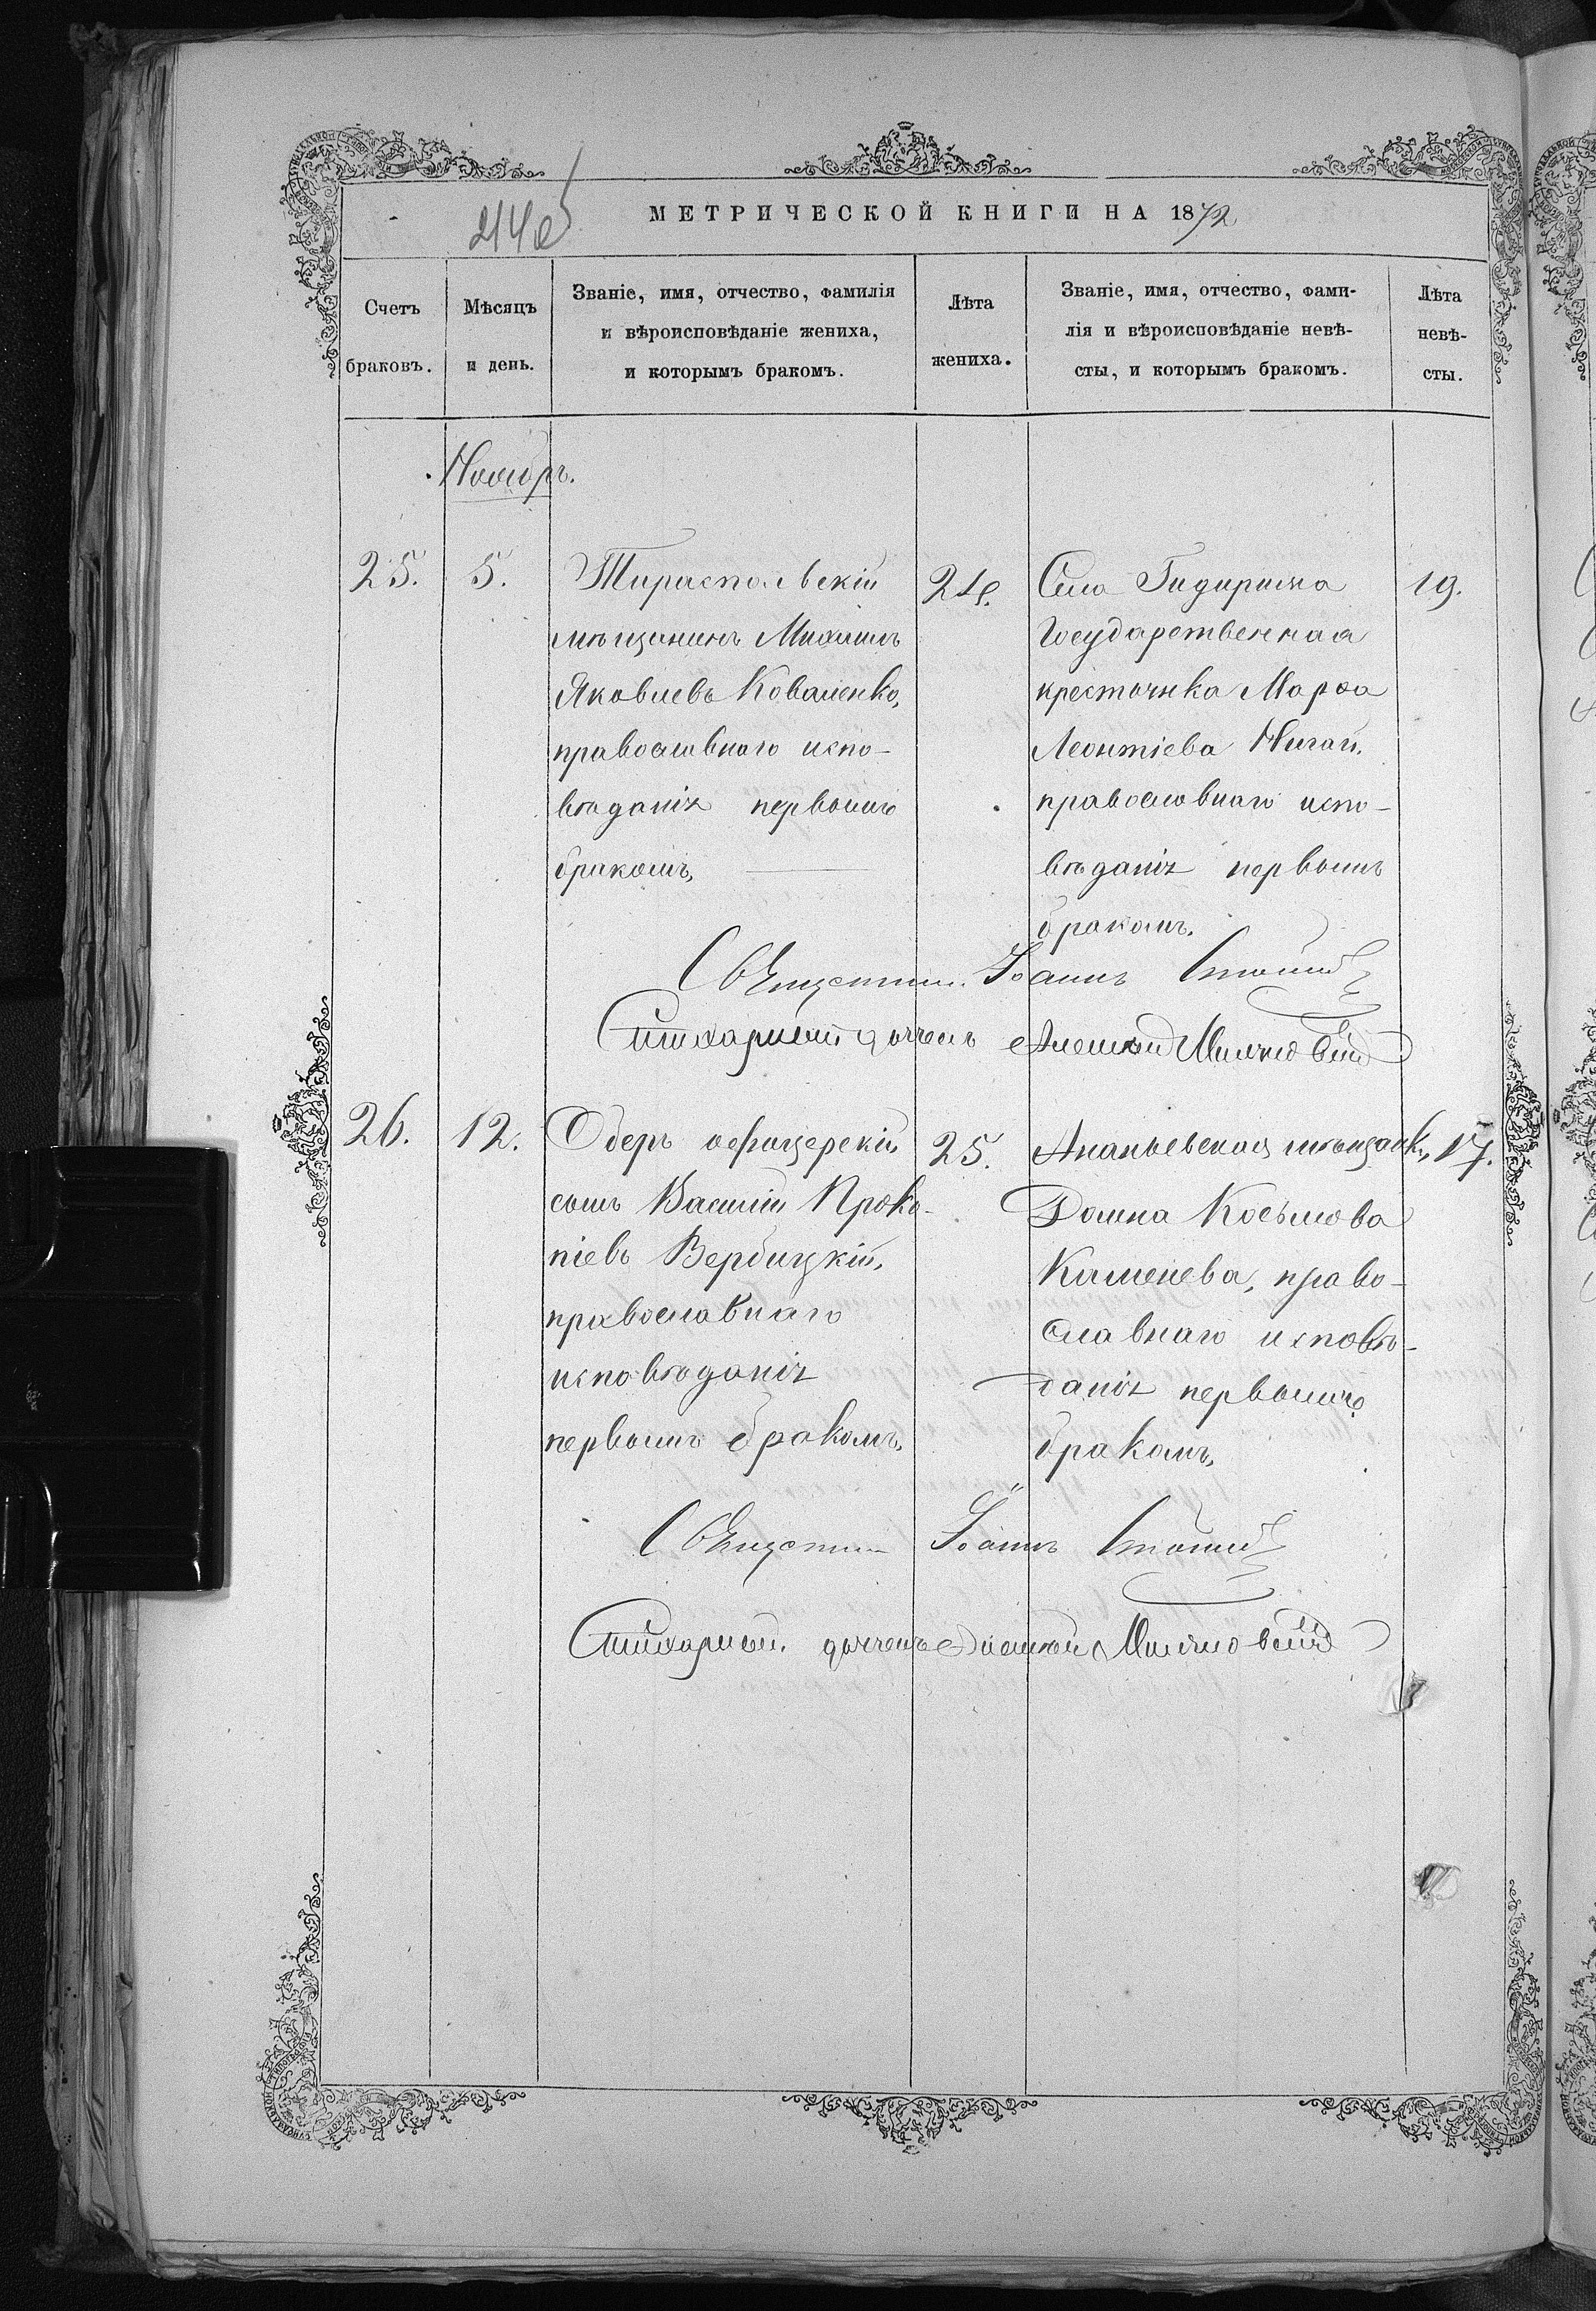 МЕТРИЧЕСКОЙ КНИГИ НА 1872
Счетъ браковъ.
Мѣсяцъ и день.
Званіе, имя, отчество, фамилія
и вѣроисповѣданіе жениха,
и которымъ бракомъ.
Лѣта жениха.
Званіе, имя, отчество, фами-
лія и вѣроисповѣданіе невѣ-
сты, и которымъ бракомъ.
Лѣта
невѣ-
сты.
Ноябрь.
25. 5.
Тираспольскій
мѣщанинъ Михаилъ
Яковлевъ Коваленко,
православнаго испо-
вѣданія первымъ
бракомъ,
24.
Села Гидирима
Государственная
крестьянка Марѳа
Леонтіева Нигай.
православнаго испо-
вѣданія первымъ
бракомъ.
19.
Священникъ Іоаннъ
Стихарный дьячекъ Алексѣй
26. 12.
Оберъ офицерскій
сынъ Василій Проко-
піевъ Вербицкій,
православнаго
исповѣданія
первымъ бракомъ,
25.
Ананьевская мѣщанка,
Домна Косьмова
Каменева, право-
славнаго исповѣ-
данія первымъ
бракомъ,
17.
Священникъ Іоаннъ
Стихарный дьячекъ Алексѣй